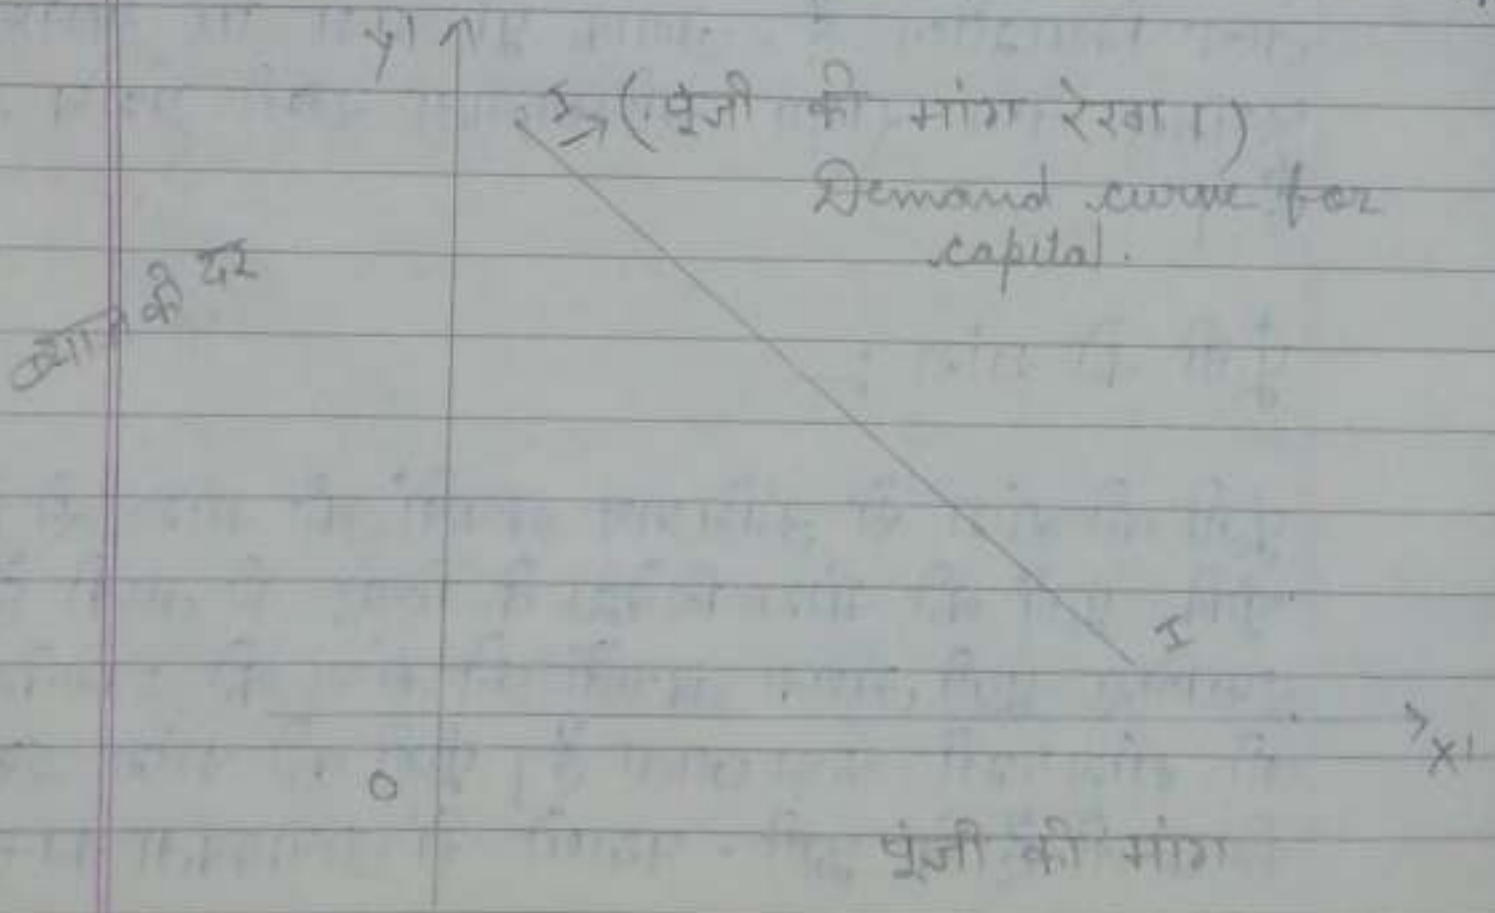 y'
I → (पूंजी की मांग रेखा।)
Demand curve for
capital.
ब्याज की दर
I
x'
O
पूंजी की मांग